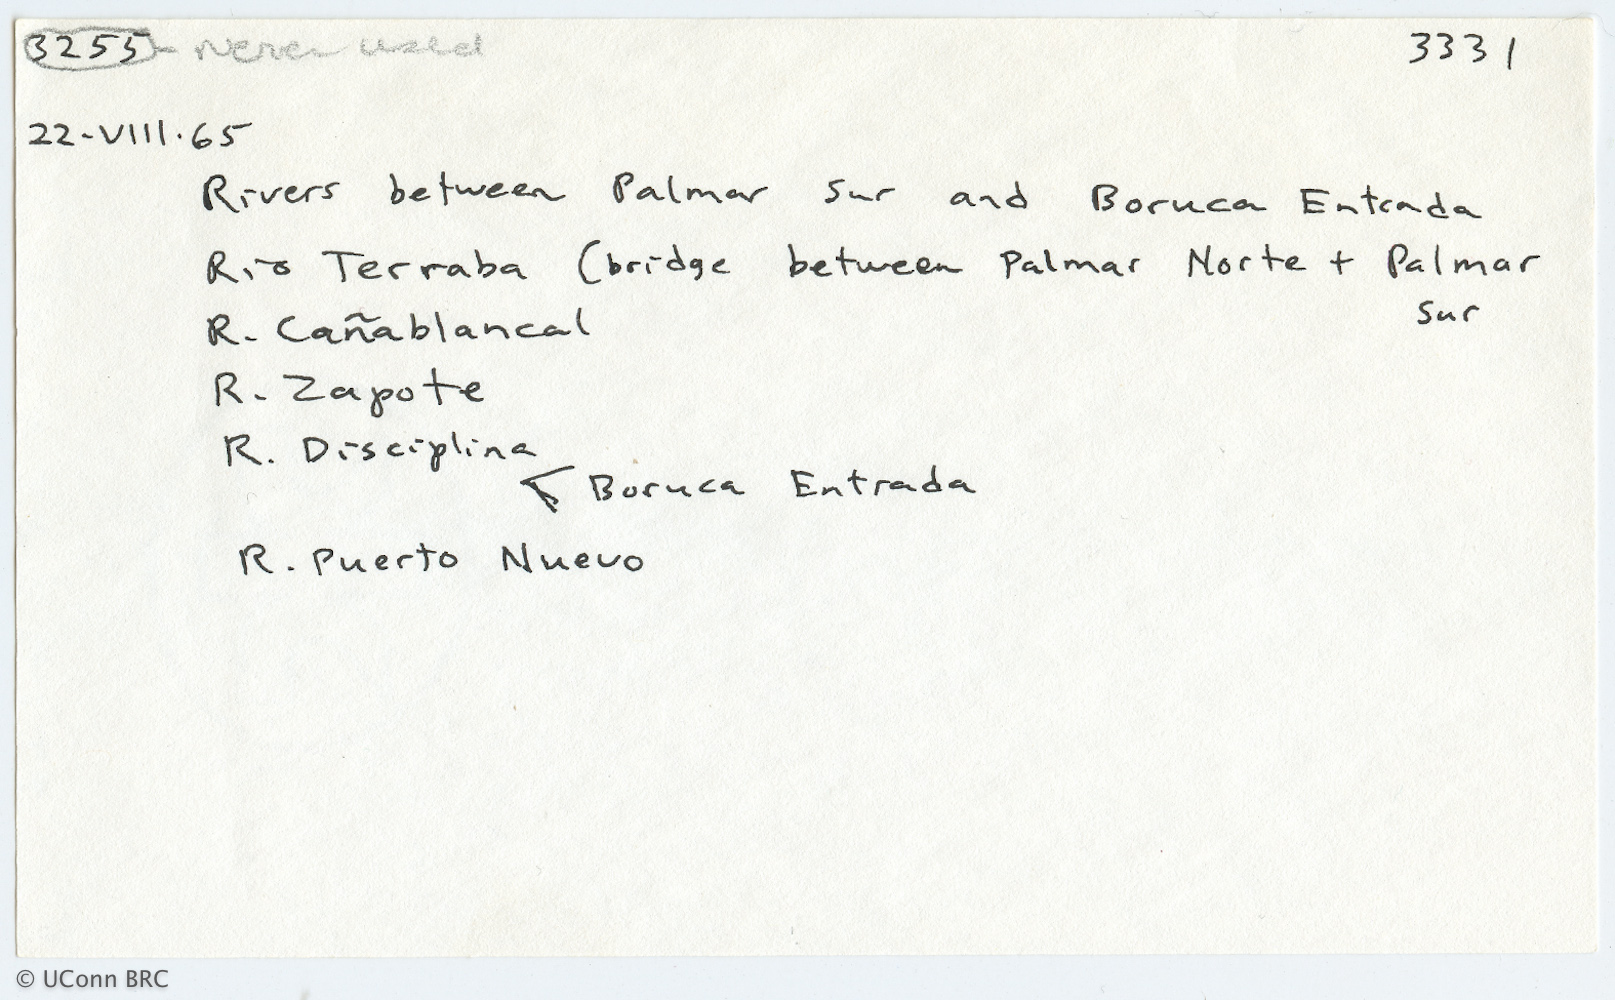 3255 - Never used 3331
22-VIII.65
Rivers between Palmar Sur and Boruca Entrada
Rio Terraba (bridge between Palmar Norte + Palmar
Sur
R. Cañablancal
R. Zapote
R. Disciplina
Boruca Entrada
R. Puerto Nuevo
© UConn BRC